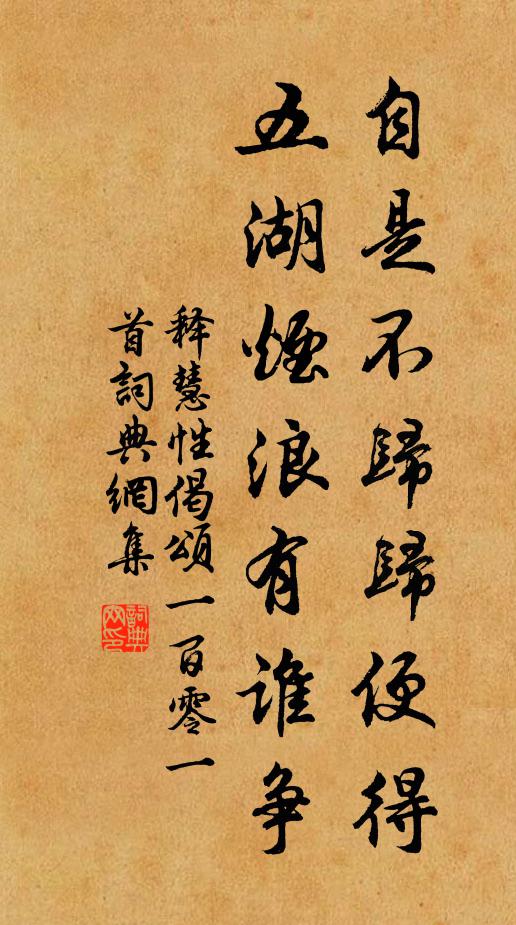 自是不歸歸便得
五湖煙浪有谁争
释慧性偈頌一百零一
首詞典網集
詞典网印